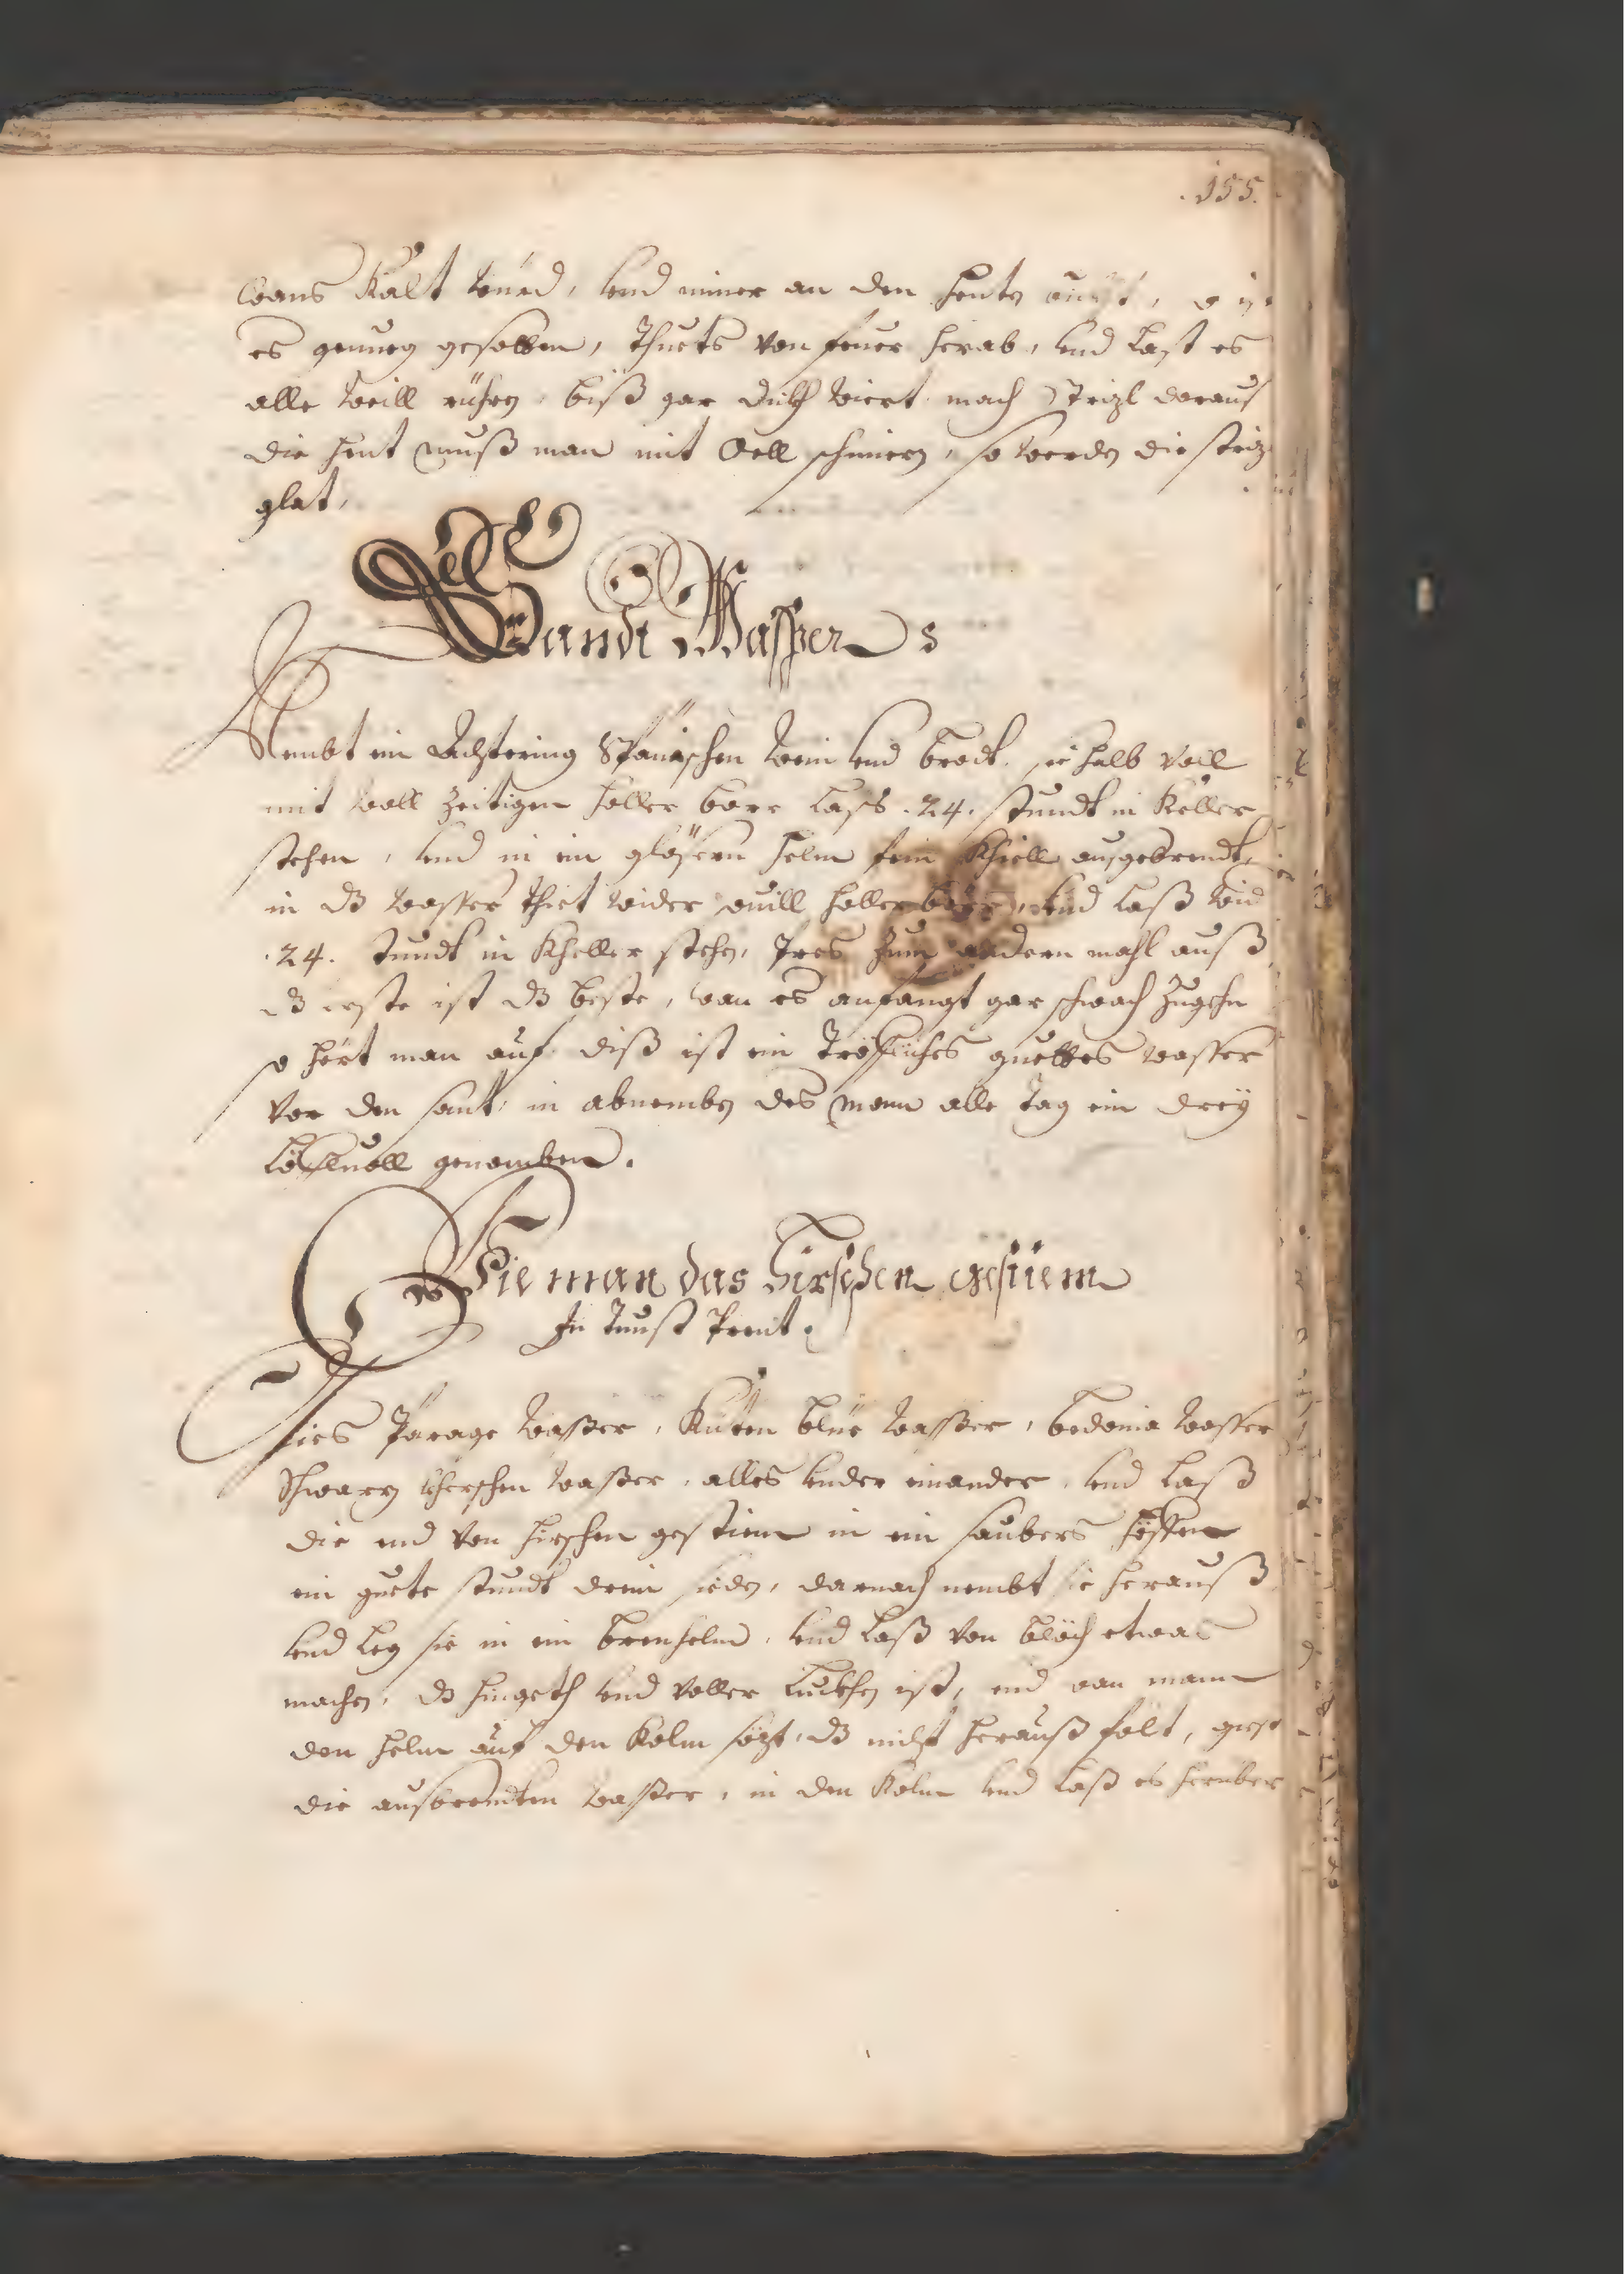 .155.
wans Kalt würd, vnd nimer an den Hentn
es genueg gesotten, Thuets von feuer herab, vnd Last es
alle weill rühen, biß gar dükh wiert, mach Strizl daraus
die hent muß man mit Oell schmiern, so werdn die striz
glat,
Sandt Wasser
Nembt ein Achtering Spänischen wein vnd brodt, sie halb voll
mit woll Zeitigen holler böre Lass .24. stundt in Keller
stehen, vnd in ein gläsern helm fein Khiell ausgebrendt,
in dz wasser thiet wider souill holler böre, vnd laß wid
.24. stundt in Kheller stehn, Pres Zum andern mahl auß
dz erste ist dz beste, wan es anfangt gar schwach Zugehn
so hört man auf, diß ist ein tröfliches guettes wasser
vor den sant, in abnembn des monn alle tag ein drey
Löfluoll genomben.
Wie man das Hirschen gstiem
In Tunst Prent.
Nies Parage wasser, Küten blüe wasser, bedonia wasser
Schwarz Kherschen wasser, alles vnder einander, vnd laß
die end von hirschen gestiem in ein saubers häffen
ein guete stundt drein siedn, darnach nembt sie herauß
vnd Leg sie in ein brenhelm, vnd Laß von blöch etwas
machn, dz hingeth vnd voller Luckhn ist, vnd wan mann
den helm auf den Kolm sözt, dz nicht herauß falt, giest
die ausbrendten wasser, in den Kolm vnd laß es herüber